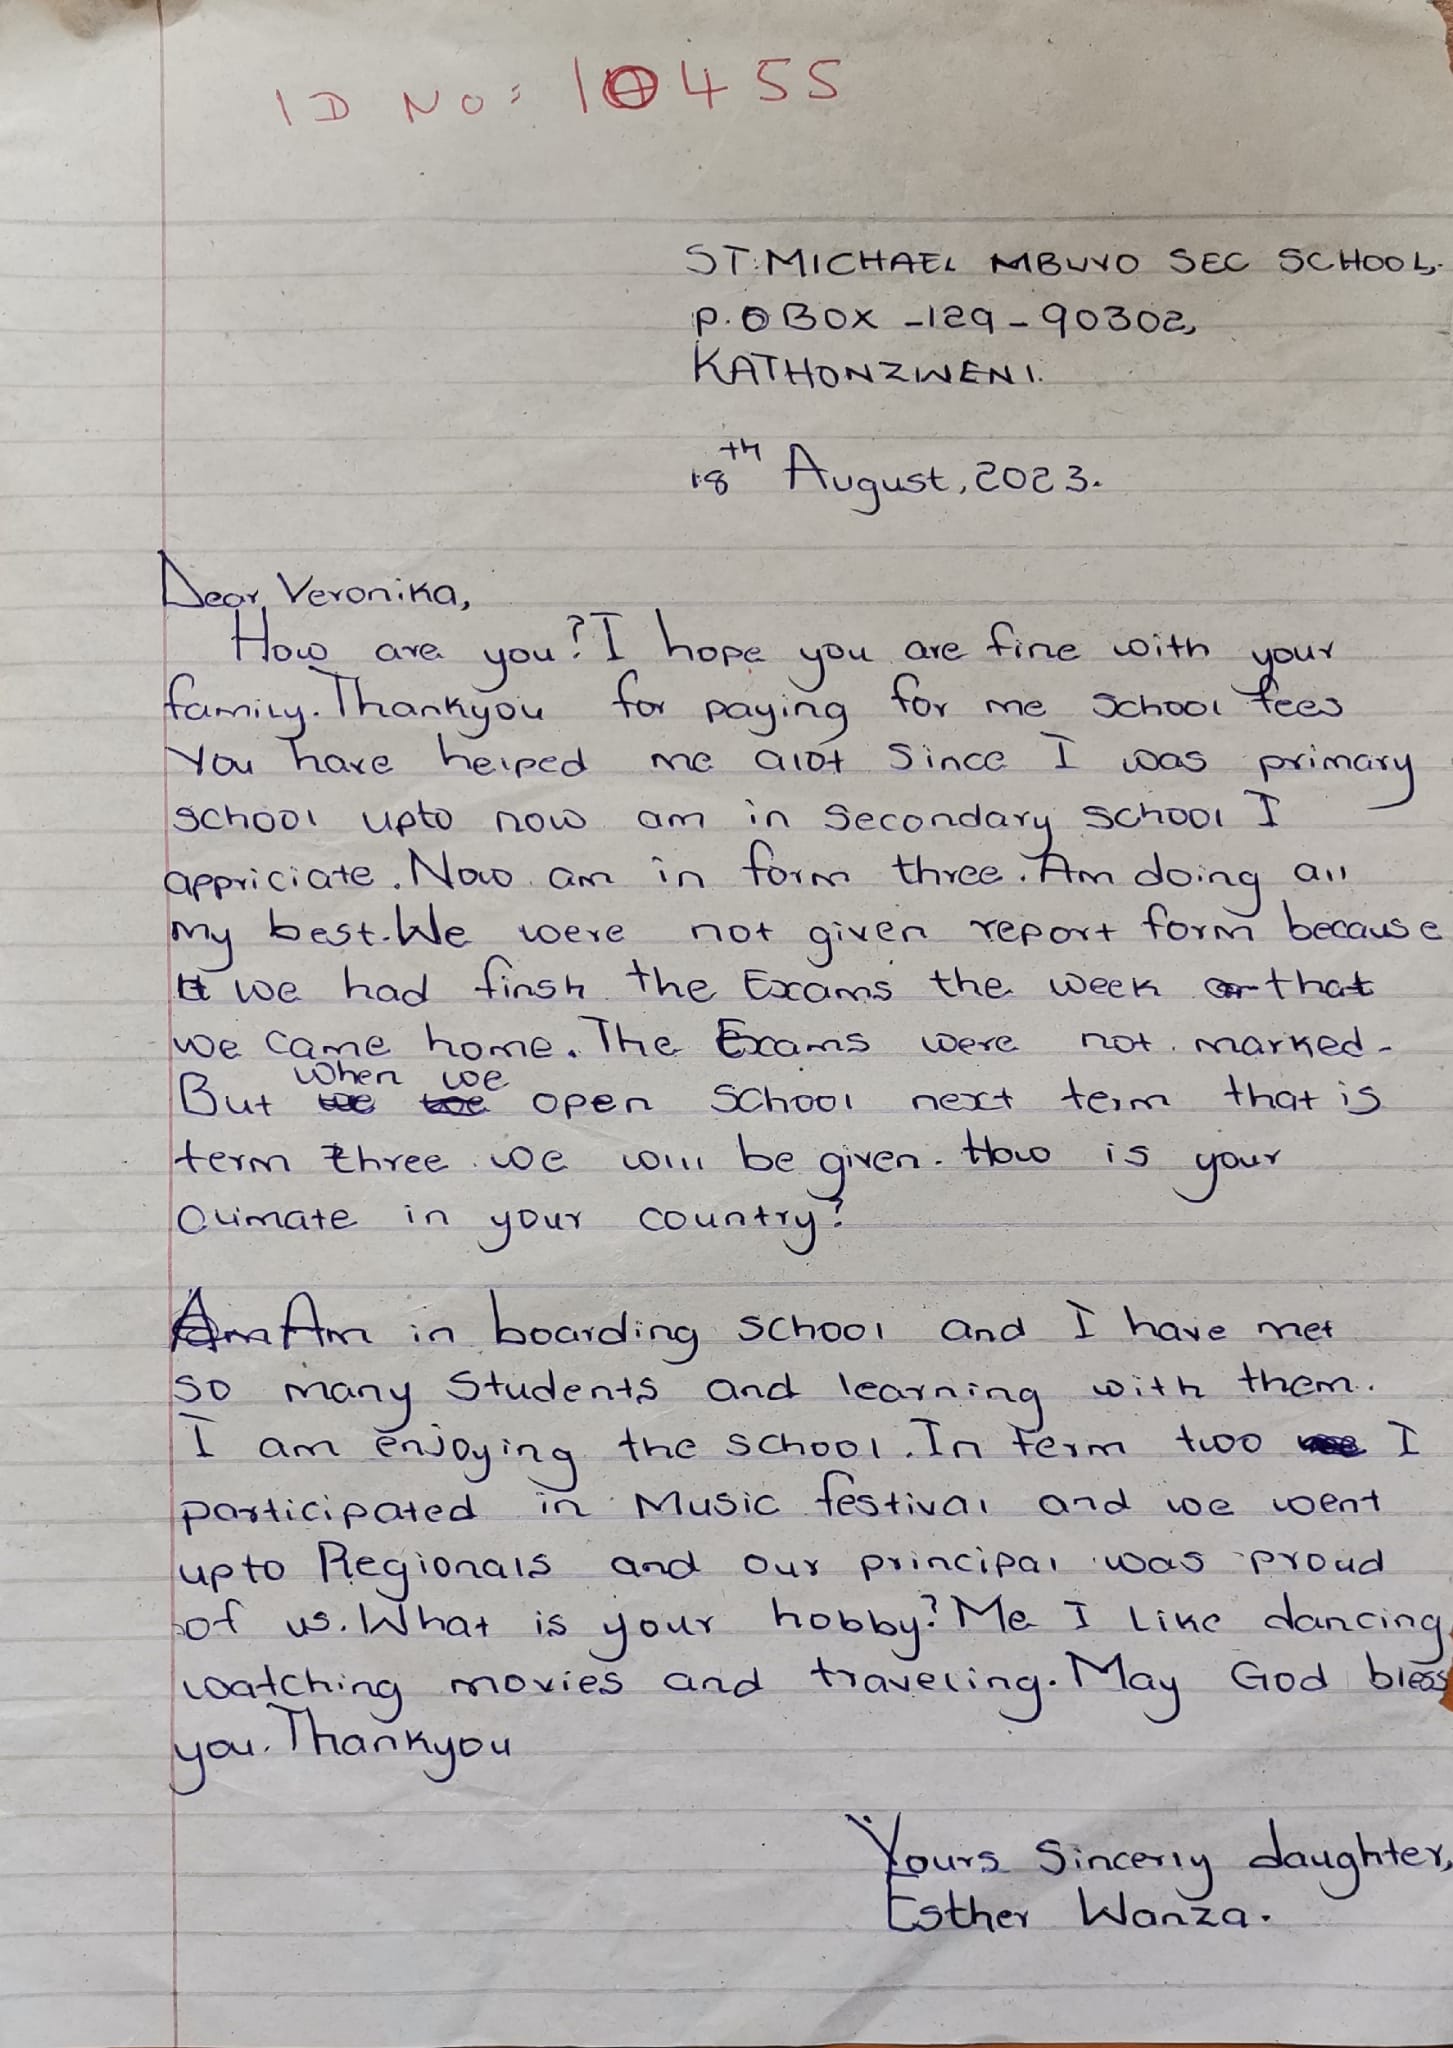 ID NO: 10455
ST. MICHAEL MBUVO SEC SCHOOL,
P.O BOX -129-90302,
KATHONZWENI.
18th August, 2023.
Dear, Veronika,
How are you? I hope you are fine with your
family. Thankyou for paying for me school fees
You have helped me alot since I was primary
school upto now am in secondary school I
appriciate. Now am in form three. Am doing all
my best. We were not given report form because
we had finsh the Exams the week that
we came home. The Exams were not marked.
But when we open school next term that is
term three we will be given. How is your
climate in your country?
Am in boarding school and I have met
so many students and learning with them.
I am enjoying the school. In term two I
participated in Music festival and we went
upto Regionals and our principal was proud
of us. What is your hobby? Me I like dancing
watching movies and traveling. May God bless
you. Thankyou
Yours Sincerly daughter,
Esther Wanza.